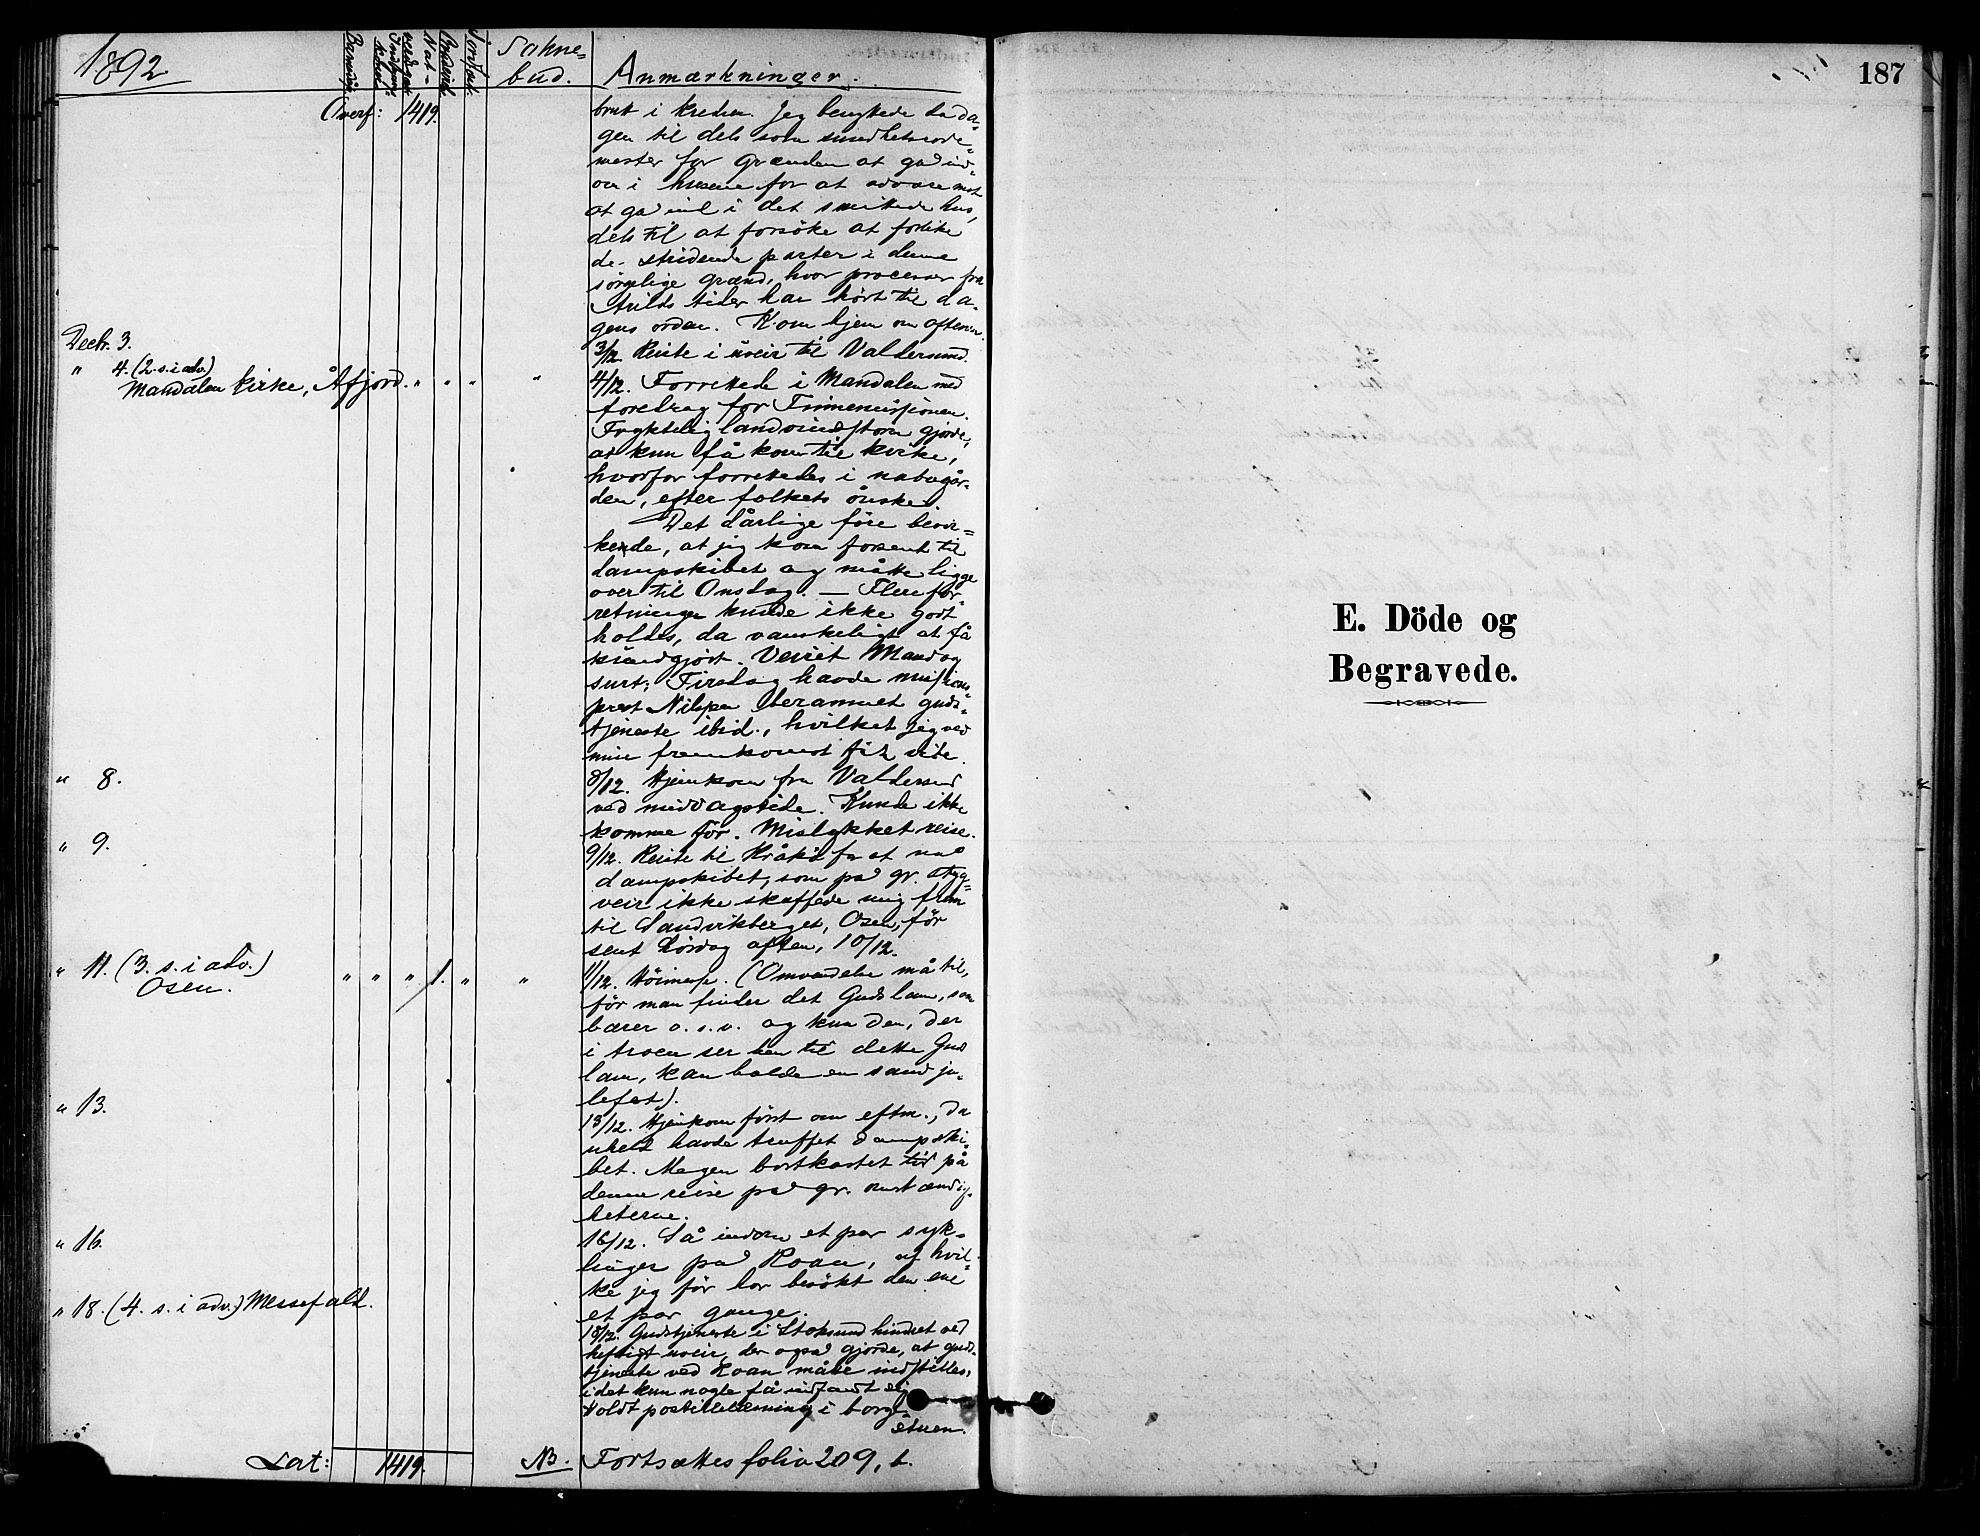 1892
Sokne-
bud.
Anmærkninger.
187
Overf: 1419.
brut i kredsen. Jeg benyttede da da-
gen til dels som sundhetsrode-
mester for Grænden at gå ind-
om i husene for at advare mot
at gå ind i det smittede hus,
dels til at forsöke at forlike
de stridende parter i denne
sörgelige grænd, hvor processer fra
Arilds tider har hört til da-
gens orden. Kom hjem om aftenen.
Decbr. 3.
3/12. Reiste i uveir til Valdersund.
" 4. (2. s. i adv.)
Mandalen kirke, Åfjord. " " " "
4/12. Forrettede i Mandalen med
foredrag for Finnemissionen.
Frygtelig landvindstorm gjorde,
at kun få kom til kirke,
hvorfor forrettedes i nabogår-
den, efter folkets önske.
Det dårlige före bevir-
kede, at jeg kom forsent til
dampskibet og måtte ligge
over til Onsdag. — Flere for-
retninger kunde ikke godt
holdes, da vanskeligt at få
kundgjort. Veiret Mandag
surt; Tirsdag havde missions-
prest Nilssen berammet guds-
tjeneste ibid., hvilket jeg ved
min fremkomst fik vide.
" 8.
8/12. Hjemkom fra Valdersund
ved middagstide. Kunde ikke
komme för. Mislykket reise.
" 9.
9/12. Reiste til Kråkö for at nå
dampskibet, som på gr. styg-
veir ikke skaffede mig frem
til Sandvikberget, Osen, för
sent Lördag aften, 10/12.
" 11. (3. s. i adv.)
Osen. " " " 1. " "
11/12. Höimesse. (Omvendelse må til,
för man finder det Guds lam, som
bærer o. s. v. og kun den, der
i troen ser hen til dette Guds
lam, kan holde en sand ju-
lefest).
" 13.
13/12. Hjemkom först om eftm., da
uheld havde truffet dampski-
bet. Megen bortkastet tid på
denne reise på gr. omstændig-
heterne.
" 16.
16/12. Så indom et par syk-
linger på Roan, af hvil-
ke jeg för har besökt den ene
et par gange.
" 18. (4. s. i adv.) Messefald.
18/12. Gudstjeneste i Stoksund hindret ved
heftigt uveir, der også gjorde, at guds-
tjeneste ved Roan måtte indstilles,
idet kun nogle få indfandt sig.
Holdt postillelæsning i borg-
stuen.
Lat: 1419.
NB. Fortsættes folio 209, b.
E. Döde og
Begravede.